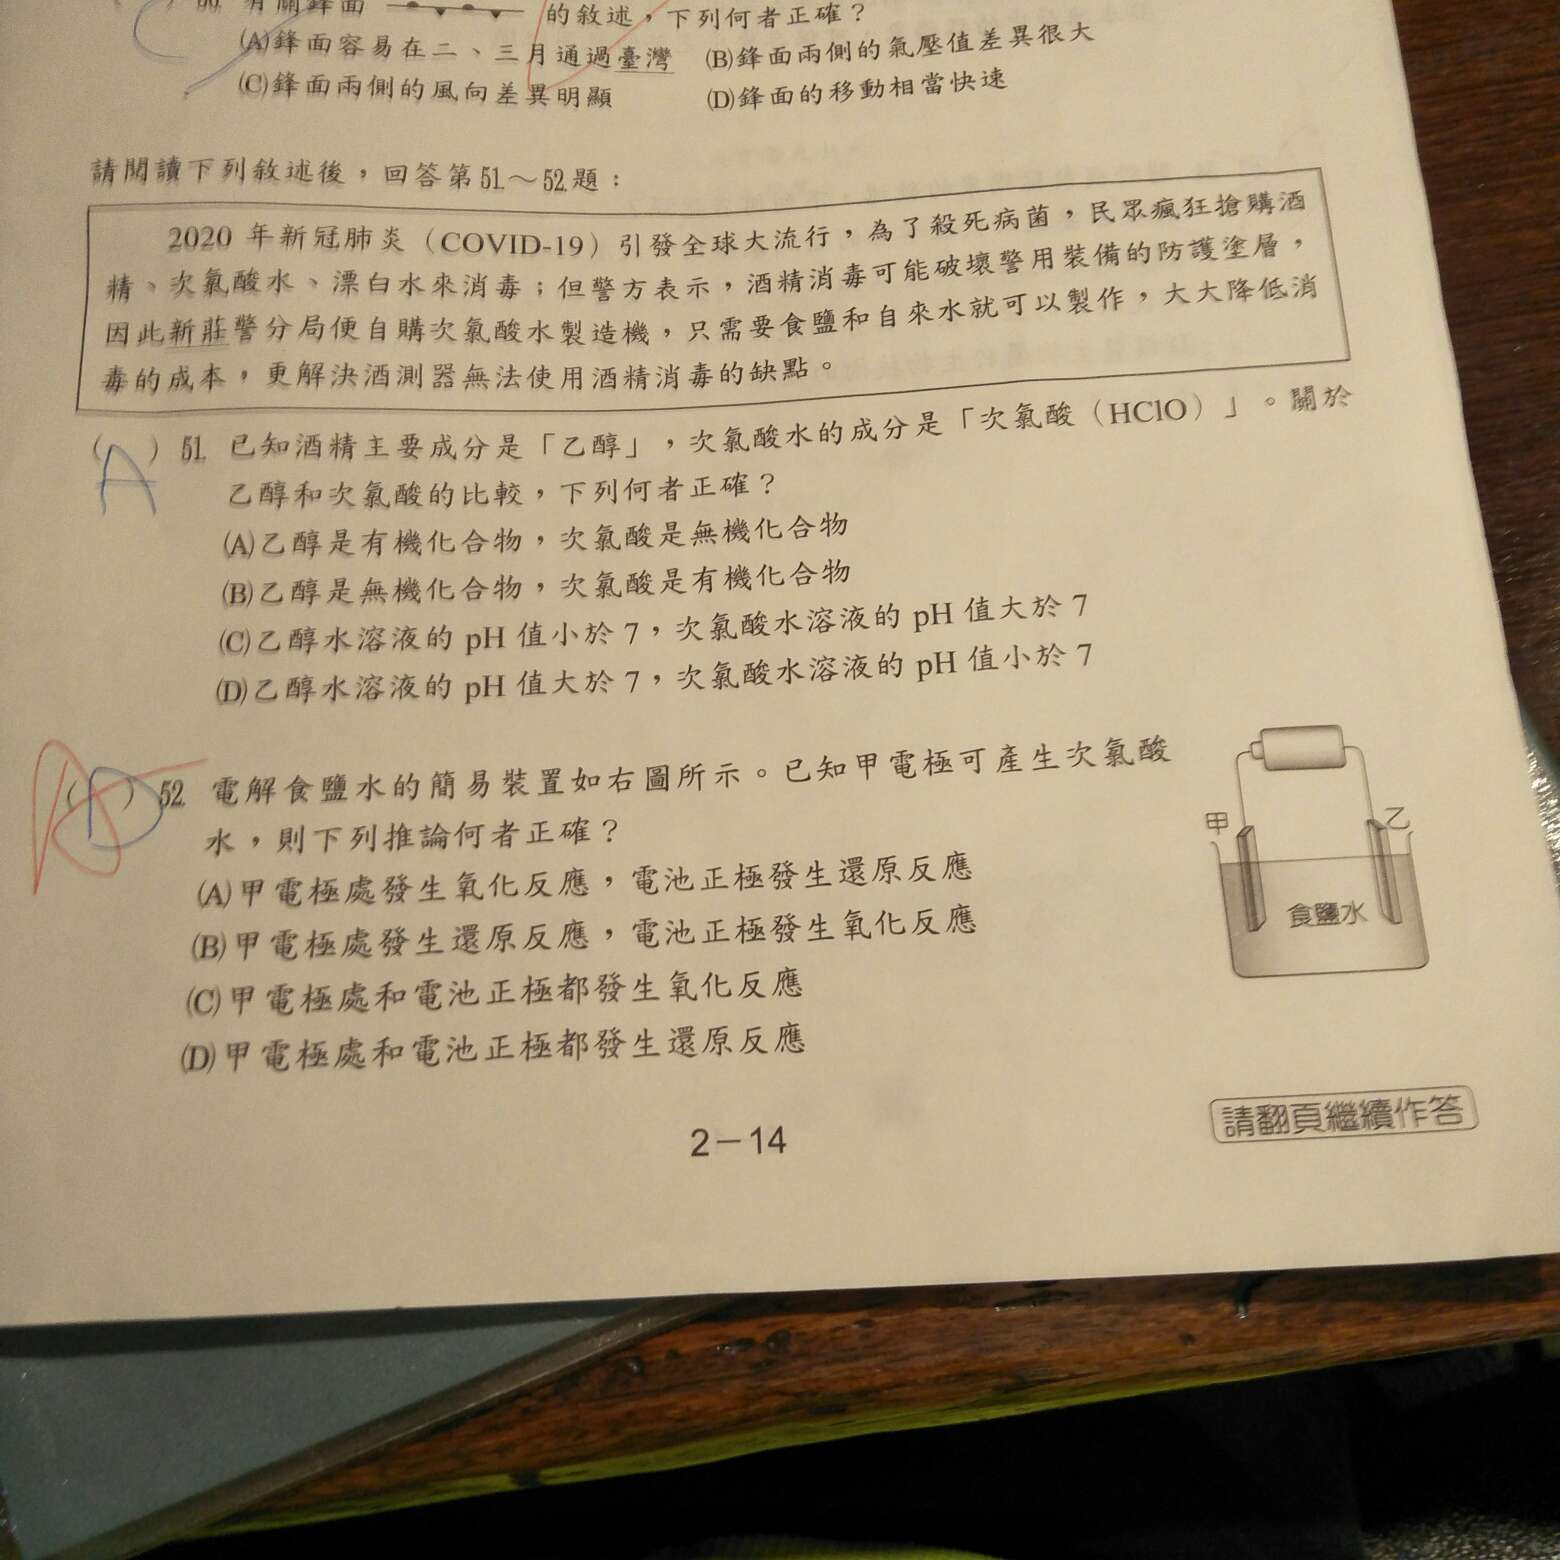 有關鋒面 的敘述，下列何者正確？
(A)鋒面容易在二、三月通過臺灣 (B)鋒面兩側的氣壓值差異很大
(C)鋒面兩側的風向差異明顯 (D)鋒面的移動相當快速
請閱讀下列敘述後，回答第51～52題：
2020 年新冠肺炎（COVID-19）引發全球大流行，為了殺死病菌，民眾瘋狂搶購酒
精、次氯酸水、漂白水來消毒；但警方表示，酒精消毒可能破壞警用裝備的防護塗層，
因此新莊警分局便自購次氯酸水製造機，只需要食鹽和自來水就可以製作，大大降低消
毒的成本，更解決酒測器無法使用酒精消毒的缺點。
( A ) 51. 已知酒精主要成分是「乙醇」，次氯酸水的成分是「次氯酸（HClO）」。關於
乙醇和次氯酸的比較，下列何者正確？
(A)乙醇是有機化合物，次氯酸是無機化合物
(B)乙醇是無機化合物，次氯酸是有機化合物
(C)乙醇水溶液的 pH 值小於 7，次氯酸水溶液的 pH 值大於 7
(D)乙醇水溶液的 pH 值大於 7，次氯酸水溶液的 pH 值小於 7
( D ) 52. 電解食鹽水的簡易裝置如右圖所示。已知甲電極可產生次氯酸
水，則下列推論何者正確？
(A)甲電極處發生氧化反應，電池正極發生還原反應
(B)甲電極處發生還原反應，電池正極發生氧化反應
(C)甲電極處和電池正極都發生氧化反應
(D)甲電極處和電池正極都發生還原反應
甲
乙
食鹽水
請翻頁繼續作答
2－14